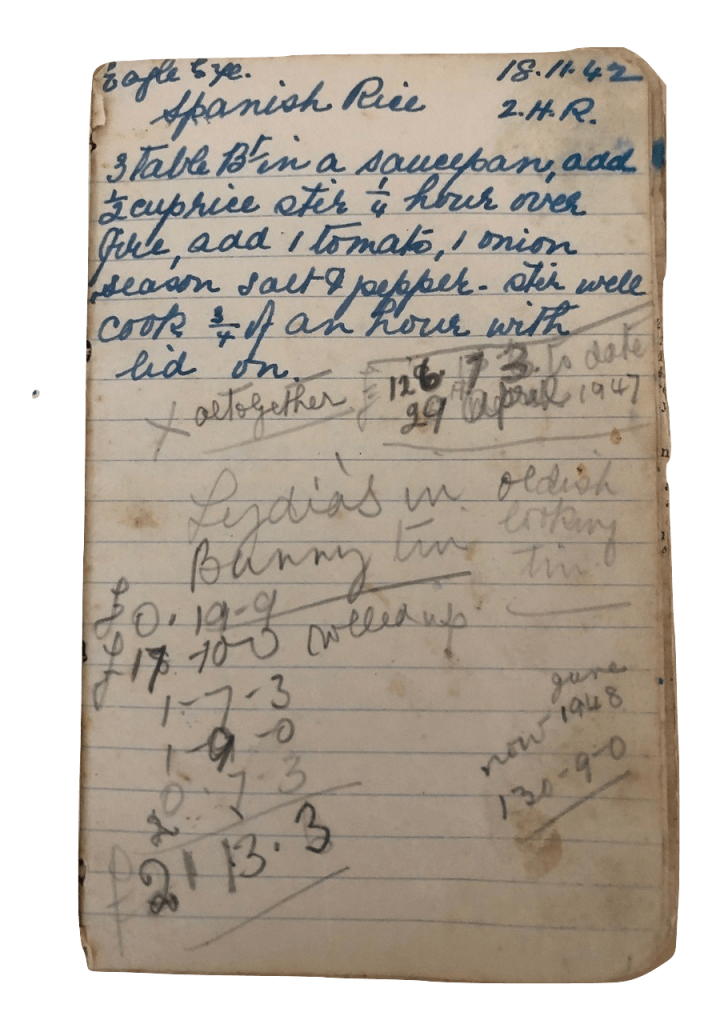 Eagle Eye. 18.11.42
Spanish Rice 2.H.R.
3 Table Bᵗ in a saucepan, add
½ cup rice stir ¼ hour over
fire, add 1 tomato, 1 onion
season salt & pepper - stir well
cook ¾ of an hour with
lid on.
£ 126 7 3 to date
X altogether 29 April 1947
Lydia's in oldish
Bunny tin looking
tin
£ 0. 19-9
£ 17 -10-0 rolled up
1-7-3
1-9-0
0.7-3
£ 21 13.3
June
now 1948
130-9-0